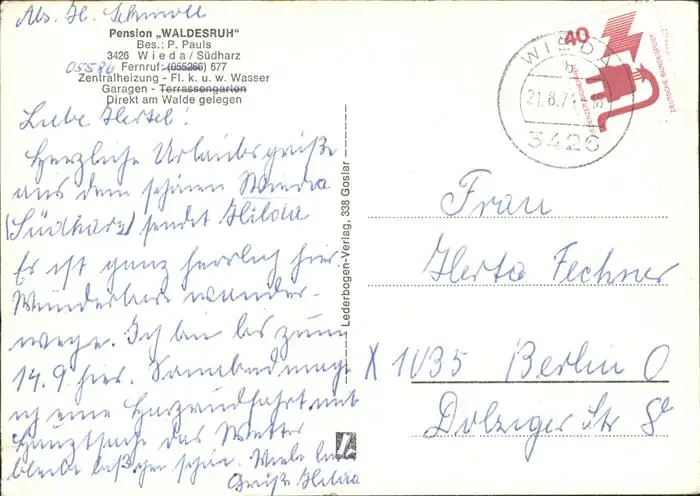 Abs. H. Schmoll
Pension „WALDESRUH"
Bes.: P. Pauls
3426 Wieda/Südharz
05586
Fernruf: (055266) 677
Zentralheizung - Fl. k. u. w. Wasser
Garagen - Terrassengarten
Direkt am Walde gelegen
Liebe Hertel!
Herzliche Urlaubsgrüße
aus dem schönen Wieda
(Südharz) sendet Hilda
Es ist ganz herrlich hier.
Wunderbare wander-
wege. Ich bin bis zum
14.9 hier. Sonnabend mache
ich eine Harzrundfahrt mit
Hauptsache das Wetter
bleibt schön. Viele liebe
Grüße Hilda
Lederbogen-Verlag, 338 Goslar
40
DEUTSCHE BUNDESPOST
WIEDA
b
21.8.7
3426
Frau
Herta Fechner
X 1035 Berlin O
Dolziger Str